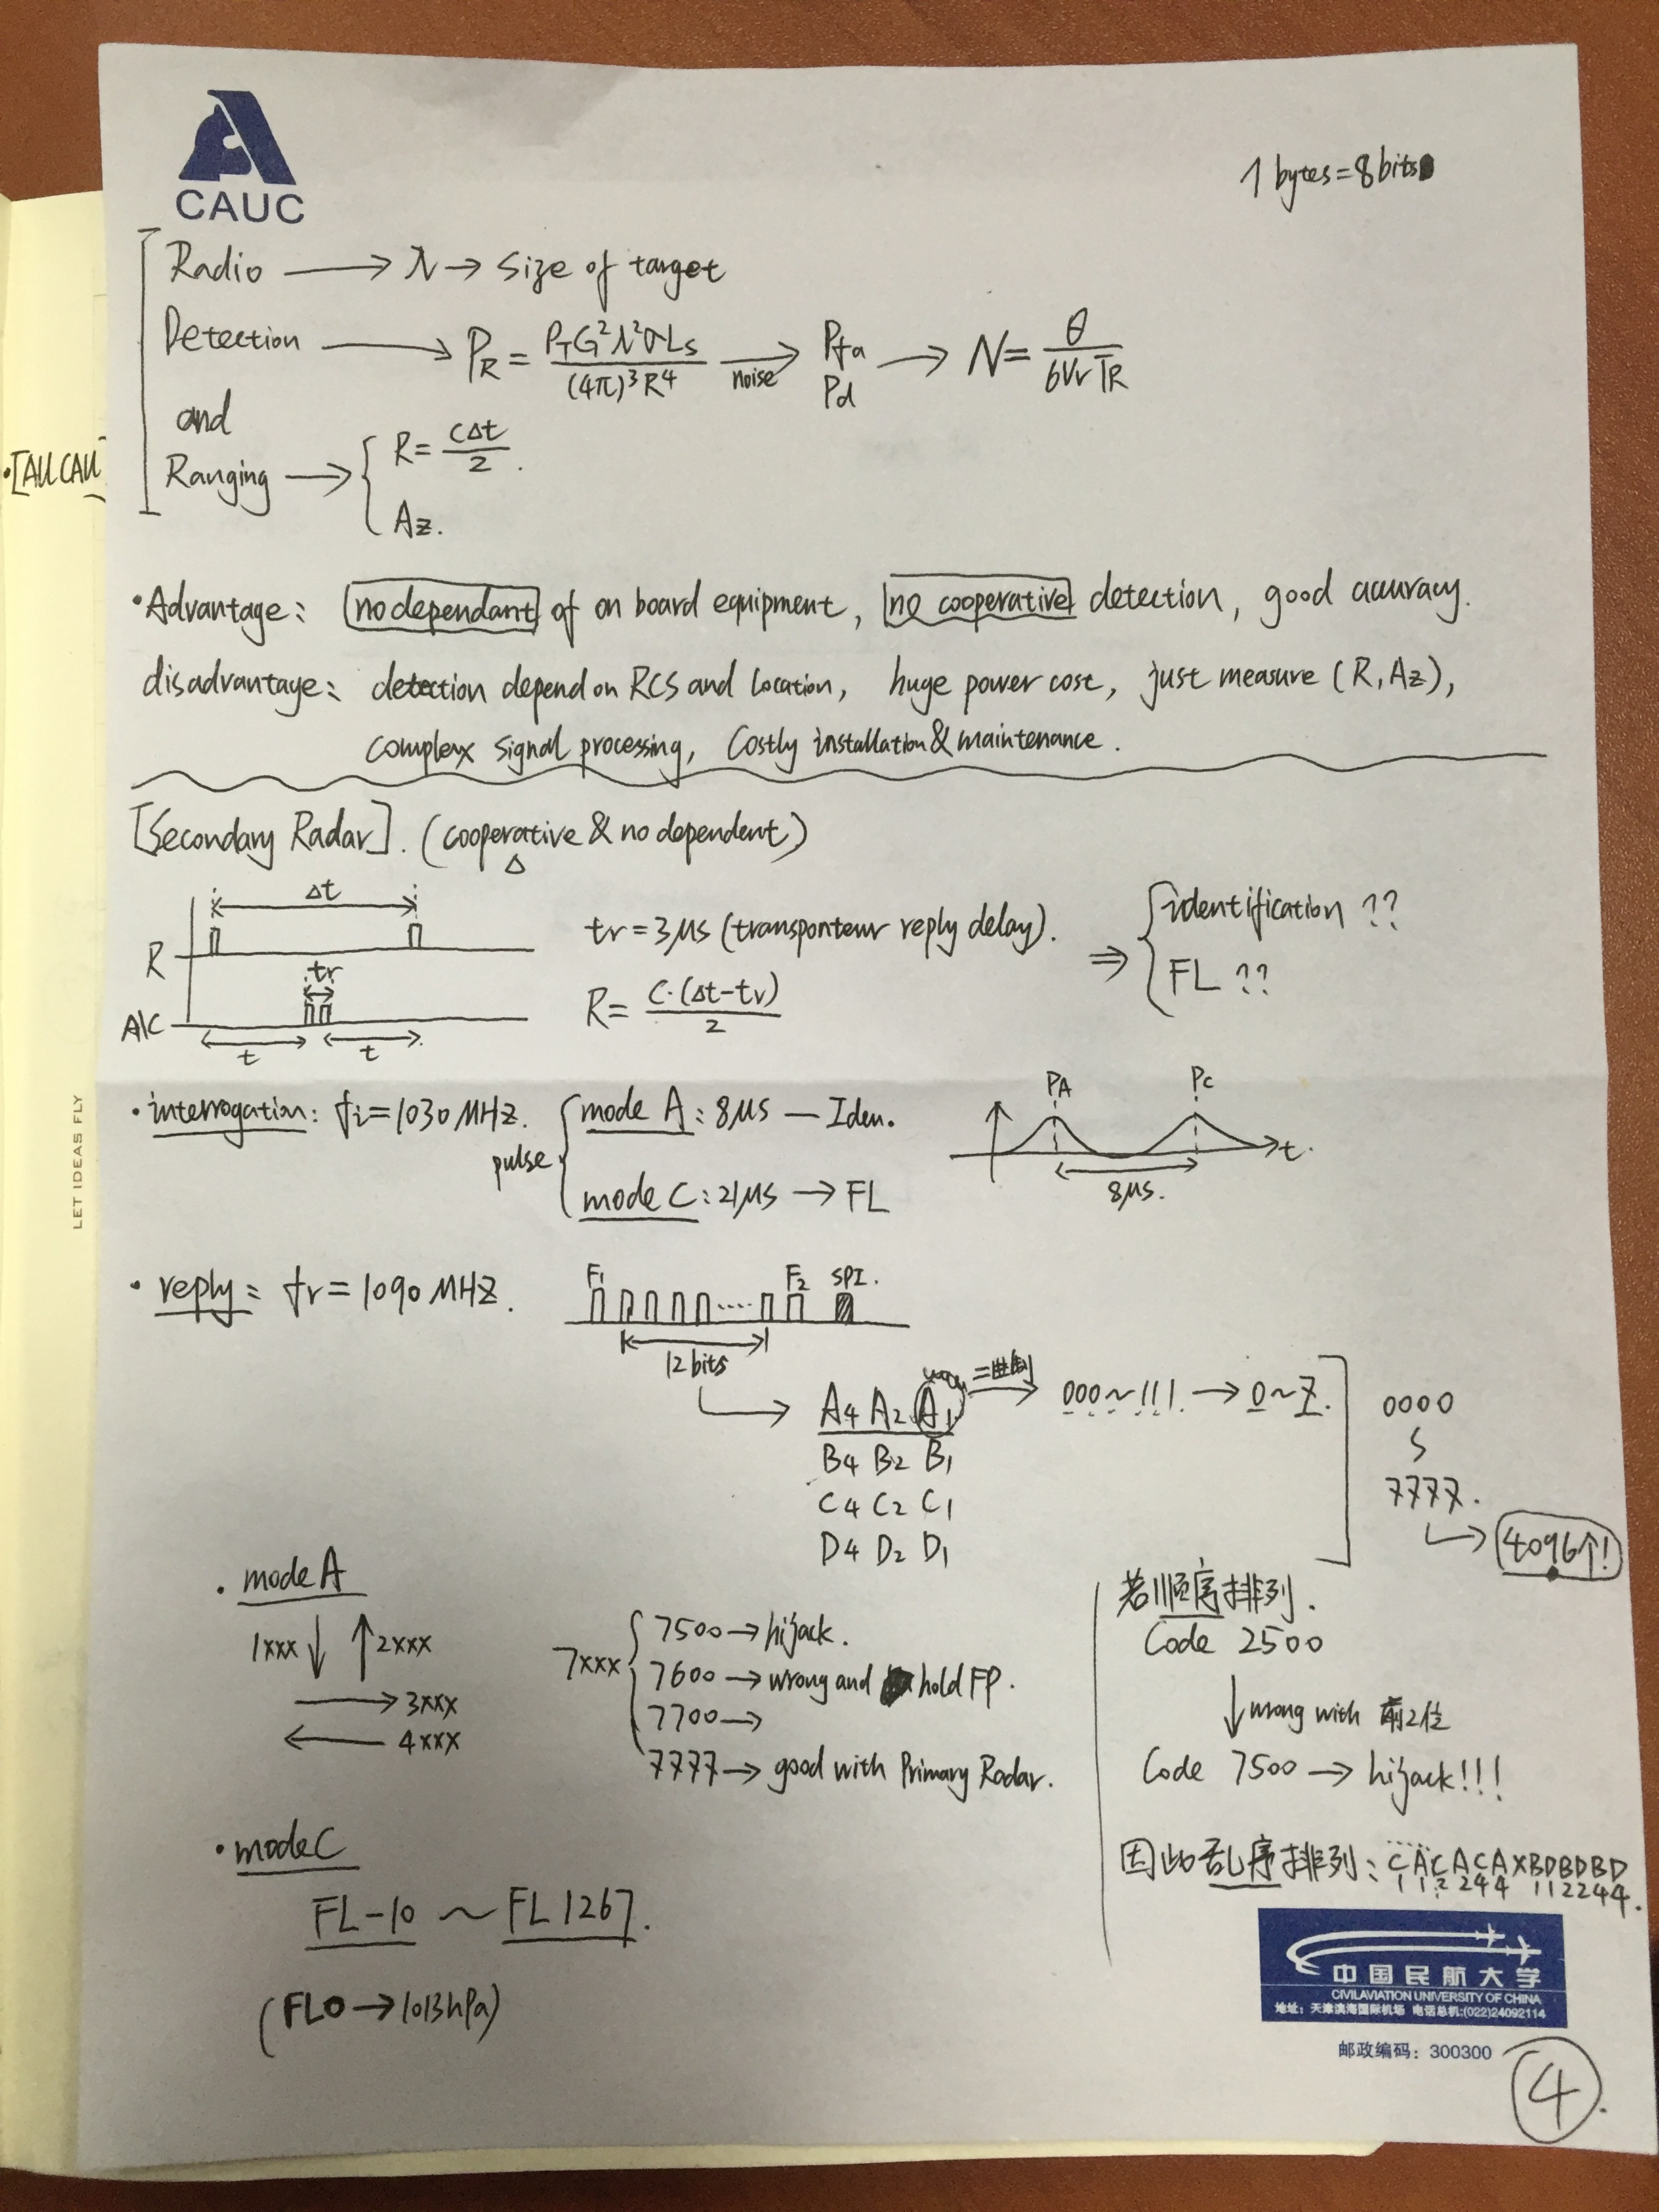 CAUC
1 bytes=8bits
Radio → λ → Size of target
Detection → PR = PTG²λ²σLs / (4π)³R⁴ → noise Pfa Pd → N = θ / 6Vr TR
and
·[AUCAU]
Ranging → { R = cΔt / 2 .
Az.
·Advantage: no dependant of on board equipment, no cooperative detection, good accuracy.
disadvantage: detection depend on RCS and Location, huge power cost, just measure (R, Az),
complex signal processing, Costly installation & maintenance.
[Secondary Radar]. (cooperative & no dependent)
Δ
Δt
R
tr
A/C
t t
tr = 3μs (transponteur reply delay).
R = C·(Δt-tr) / 2
⇒ { identification ??
FL ??
LET IDEAS FLY
· interrogation: fi = 1030 MHZ. pulse { mode A: 8μs — Iden.
mode C: 21μs → FL
PA Pc
t.
8μs.
· reply: fr = 1090 MHZ.
F1 F2 SPI.
12 bits
→ A4 A2 A1 二进制 → 000~111. → 0~7.
B4 B2 B1
C4 C2 C1
D4 D2 D1
0000
S
7777.
→ 4096个!
· mode A
1xxx ↓ ↑ 2xxx
→ 3xxx
← 4xxx
7xxx { 7500 → hijack.
7600 → wrong and hold FP.
7700 →
7777 → good with Primary Radar.
若顺序排列.
Code 2500
↓ wrong with 前2位
Code 7500 → hijack!!!
因此乱序排列: C A C A C A X B D B D B D
1 1 2 2 4 4 1 1 2 2 4 4.
· mode C
FL-10 ~ FL 1267.
(FL0 → 1013hPa)
中国民航大学
CIVILAVIATION UNIVERSITY OF CHINA
地址：天津滨海国际机场 电话总机:(022)24092114
邮政编码：300300
4.